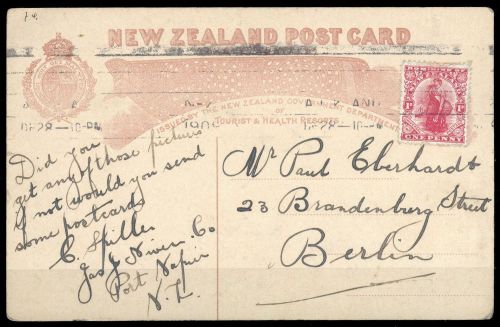 NEW ZEALAND POST CARD
ISSUED BY THE NEW ZEALAND GOVERNMENT DEPARTMENT
OF
TOURIST & HEALTH RESORTS
NEW ZEALAND
1D 1D
ONE PENNY
DE 28 — 10-PM
190
DE 28 — 10-PM
Did you
get any of those pictures
If not would you send
some postcards
C. Spiller
Niven & Co
Port Napier
N. Z.
Mr Paul Eberhardt
23 Brandenburg Street
Berlin